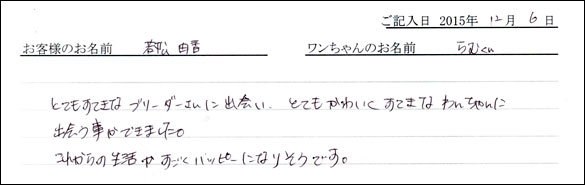 ご記入日 2015年 12月 6日
お客様のお名前 若松 由香 ワンちゃんのお名前 らむくん
とてもすてきなブリーダーさんに出会い、とてもかわいくすてきなわんちゃんに
出会う事ができました。
これからの生活がすごくハッピーになりそうです。